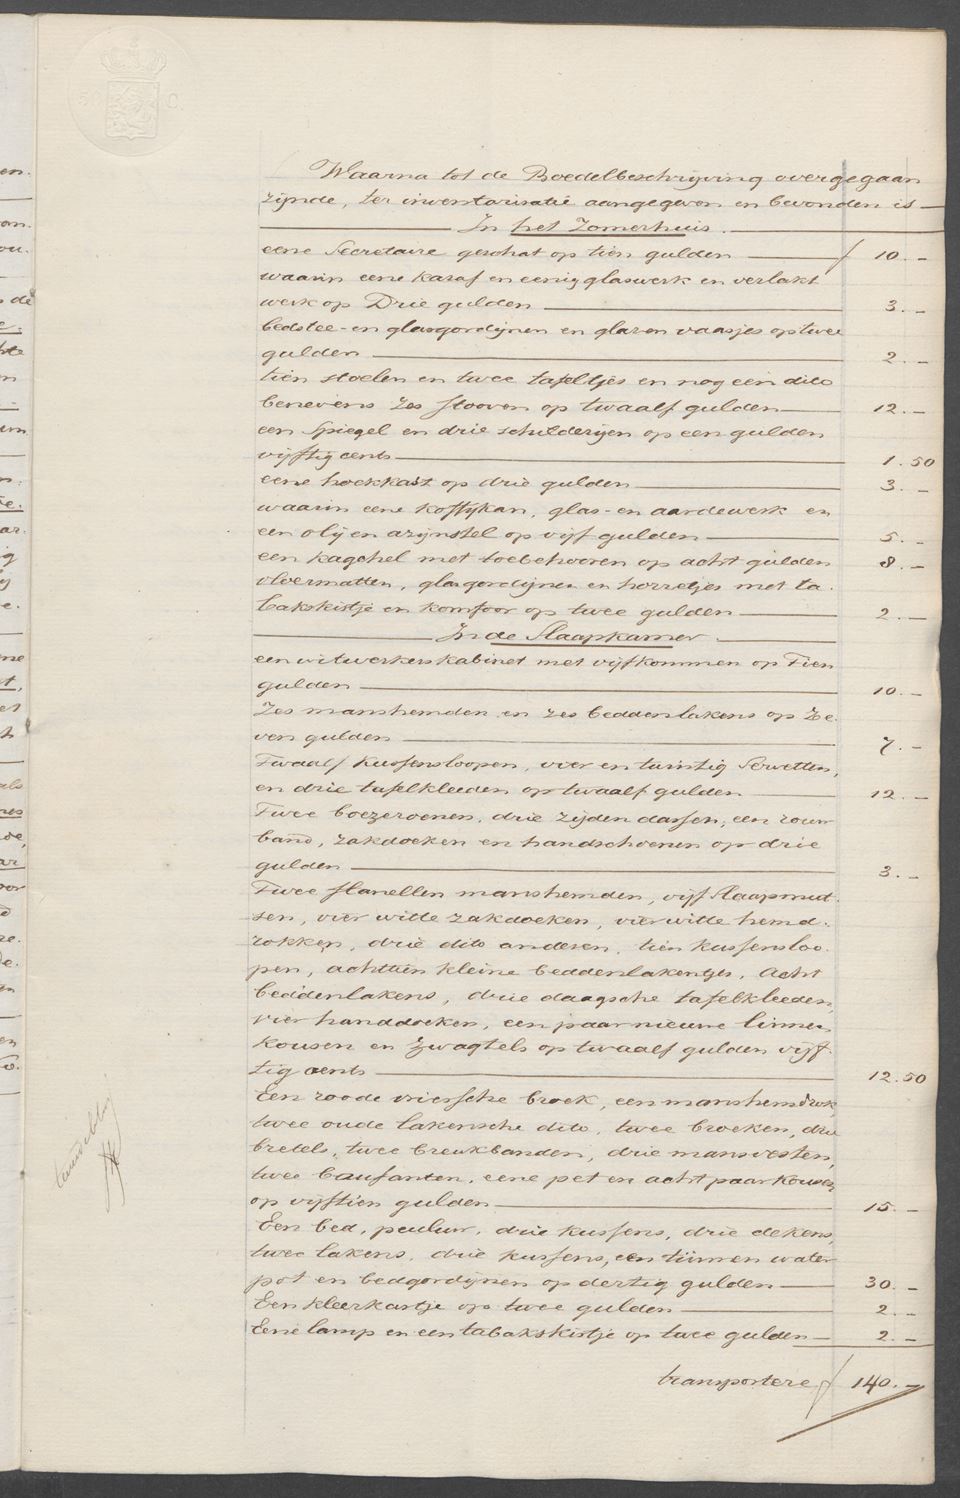 Waarna tot de Boedelbeschrijving overgegaan
zijnde, ter inventarisatie aangegeven en bevonden is
In het Zomerhuis.
eene Secretaire geschat op tien gulden ƒ 10. -
waarin eene karaf en eenig glaswerk en verlakt
werk op Drie gulden 3. -
bedstee- en glasgordijnen en glazen vaasjes op twee
gulden 2. -
tien stoelen en twee tafeltjes en nog een dito
benevens zes stooven op twaalf gulden 12. -
een Spiegel en drie schilderijen op een gulden
vijftig cents 1. 50
eene hoekkast op drie gulden 3. -
waarin eene koffijkan, glas- en aardewerk en
een olij en azijnstel op vijf gulden 5. -
een kagchel met toebehooren op acht gulden 8. -
vloermatten, glasgordijnen en horretjes met ta-
bakskistje en komfoor op twee gulden 2. -
In de Slaapkamer.
een witwerkerskabinet met vijf kommen op Tien
gulden 10. -
Zes manshemden en zes beddenlakens op Ze-
ven gulden 7. -
Twaalf kussensloopen, vier en twintig Servetten,
en drie tafelkleeden op twaalf gulden 12. -
Twee boezeroenen, drie zijden dassen, een rouw
band, zakdoeken en handschoenen op drie
gulden 3. -
Twee flanellen manshemden, vijf Slaapmut-
sen, vier witte zakdoeken, vier witte hemd-
rokken, drie dito anderen, tien kussensloo-
pen, achttien kleine beddenlakentjes, Acht
beddenlakens, drie daagsche tafelkleeden,
vier handdoeken, een paar nieuwe linnen
kousen en Zwagtels op twaalf gulden vijf-
tig cents 12. 50
Een roode vriesche broek, een manshemdrok,
twee oude lakensche dito, twee broeken, drie
bretels, twee breukbanden, drie mansvesten,
twee baufanten, eene pet en acht paar kousen
op vijftien gulden 15. -
Een bed, peuluw, drie kussens, drie dekens,
twee lakens, drie kussens, een tinnen water
pot en bedgordijnen op dertig gulden 30. -
Een kleerkastje op twee gulden 2. -
Eene lamp en een tabakskistje op twee gulden 2. -
transportere ƒ 140. -